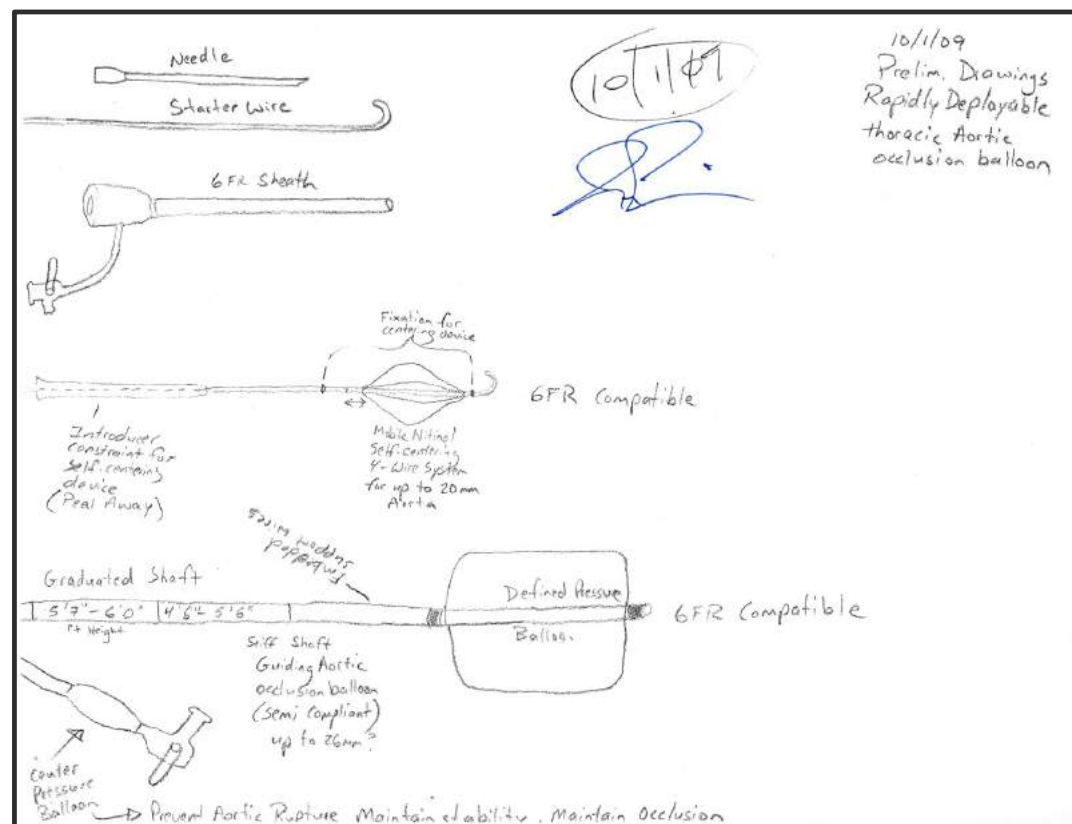 Needle
Starter Wire
6FR Sheath
10/1/09
10/1/09
Prelim. Drawings
Rapidly Deployable
thoracic Aortic
occlusion balloon
Fixation for
centering device
6FR Compatible
Introducer
constraint for
self-centering
device
(Peal Away)
Mobile Nitinol
Self-centering
4-Wire System
for up to 20mm
Aorta
Embedded
support wires
Graduated Shaft
5'7"-6'0" 4'6"-5'6"
Pt Height
Defined Pressure
Balloon.
6FR Compatible
Stiff Shaft
Guiding Aortic
occlusion balloon
(semi compliant)
up to 26mm?
Counter
Pressure
Balloon
Prevent Aortic Rupture Maintain stability. Maintain occlusion